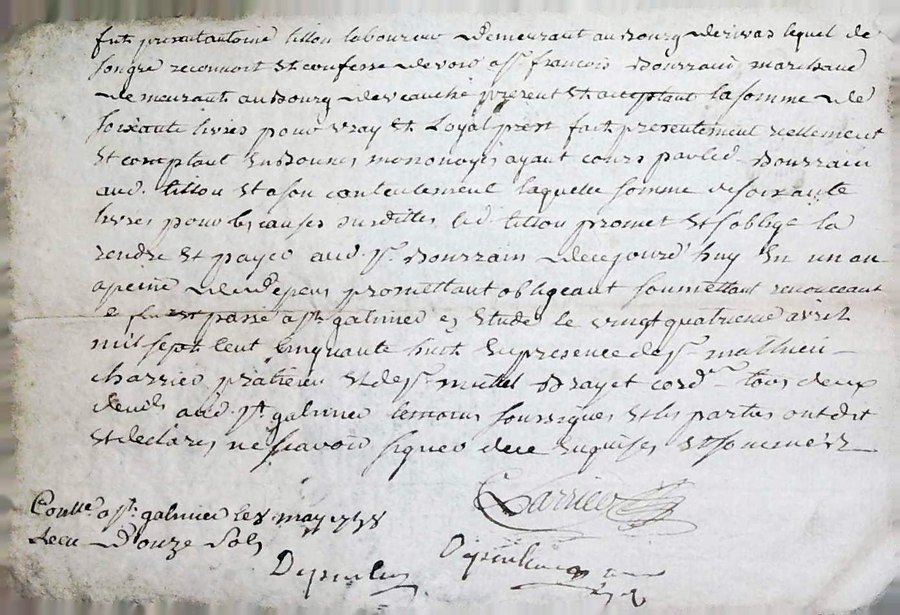 fut present antoine tillon laboureur demeurant au Bourg de rivas lequel de
son gré reconnoit et confesse devoir a Sr. francois Bourrain marchand
demeurant au Bourg de veauche present et acceptant la somme de
soixante livres pour vray et Loyal prest fait presentement reellement
et comptant en Bonnes monnoyes ayant cours par led. Bourrain
aud. tillon et a son contentement laquelle somme de soixante
livres pour les causes susdittes led tillon promet et s'oblige la
rendre et payer aud Sr. Bourrain de ce jourd'huy en un an
a peine de d'epens promettant obligeant soumettant renonceant
fut passé a St. galmier es Etude le vingt quatrieme avril
mil sept Cent cinquante huit en presence de Sr. mathieu
charrier praticien et de Sr. michel Brayet cordr. tous deux
dud. St. galmier temoins soussignes et les parties ont dit
et declarés ne sçavoir signer de ce enquises et sommées
Charrier
Contlé. a St. galmier le 8 may 1758
Recu D'ouze Sols